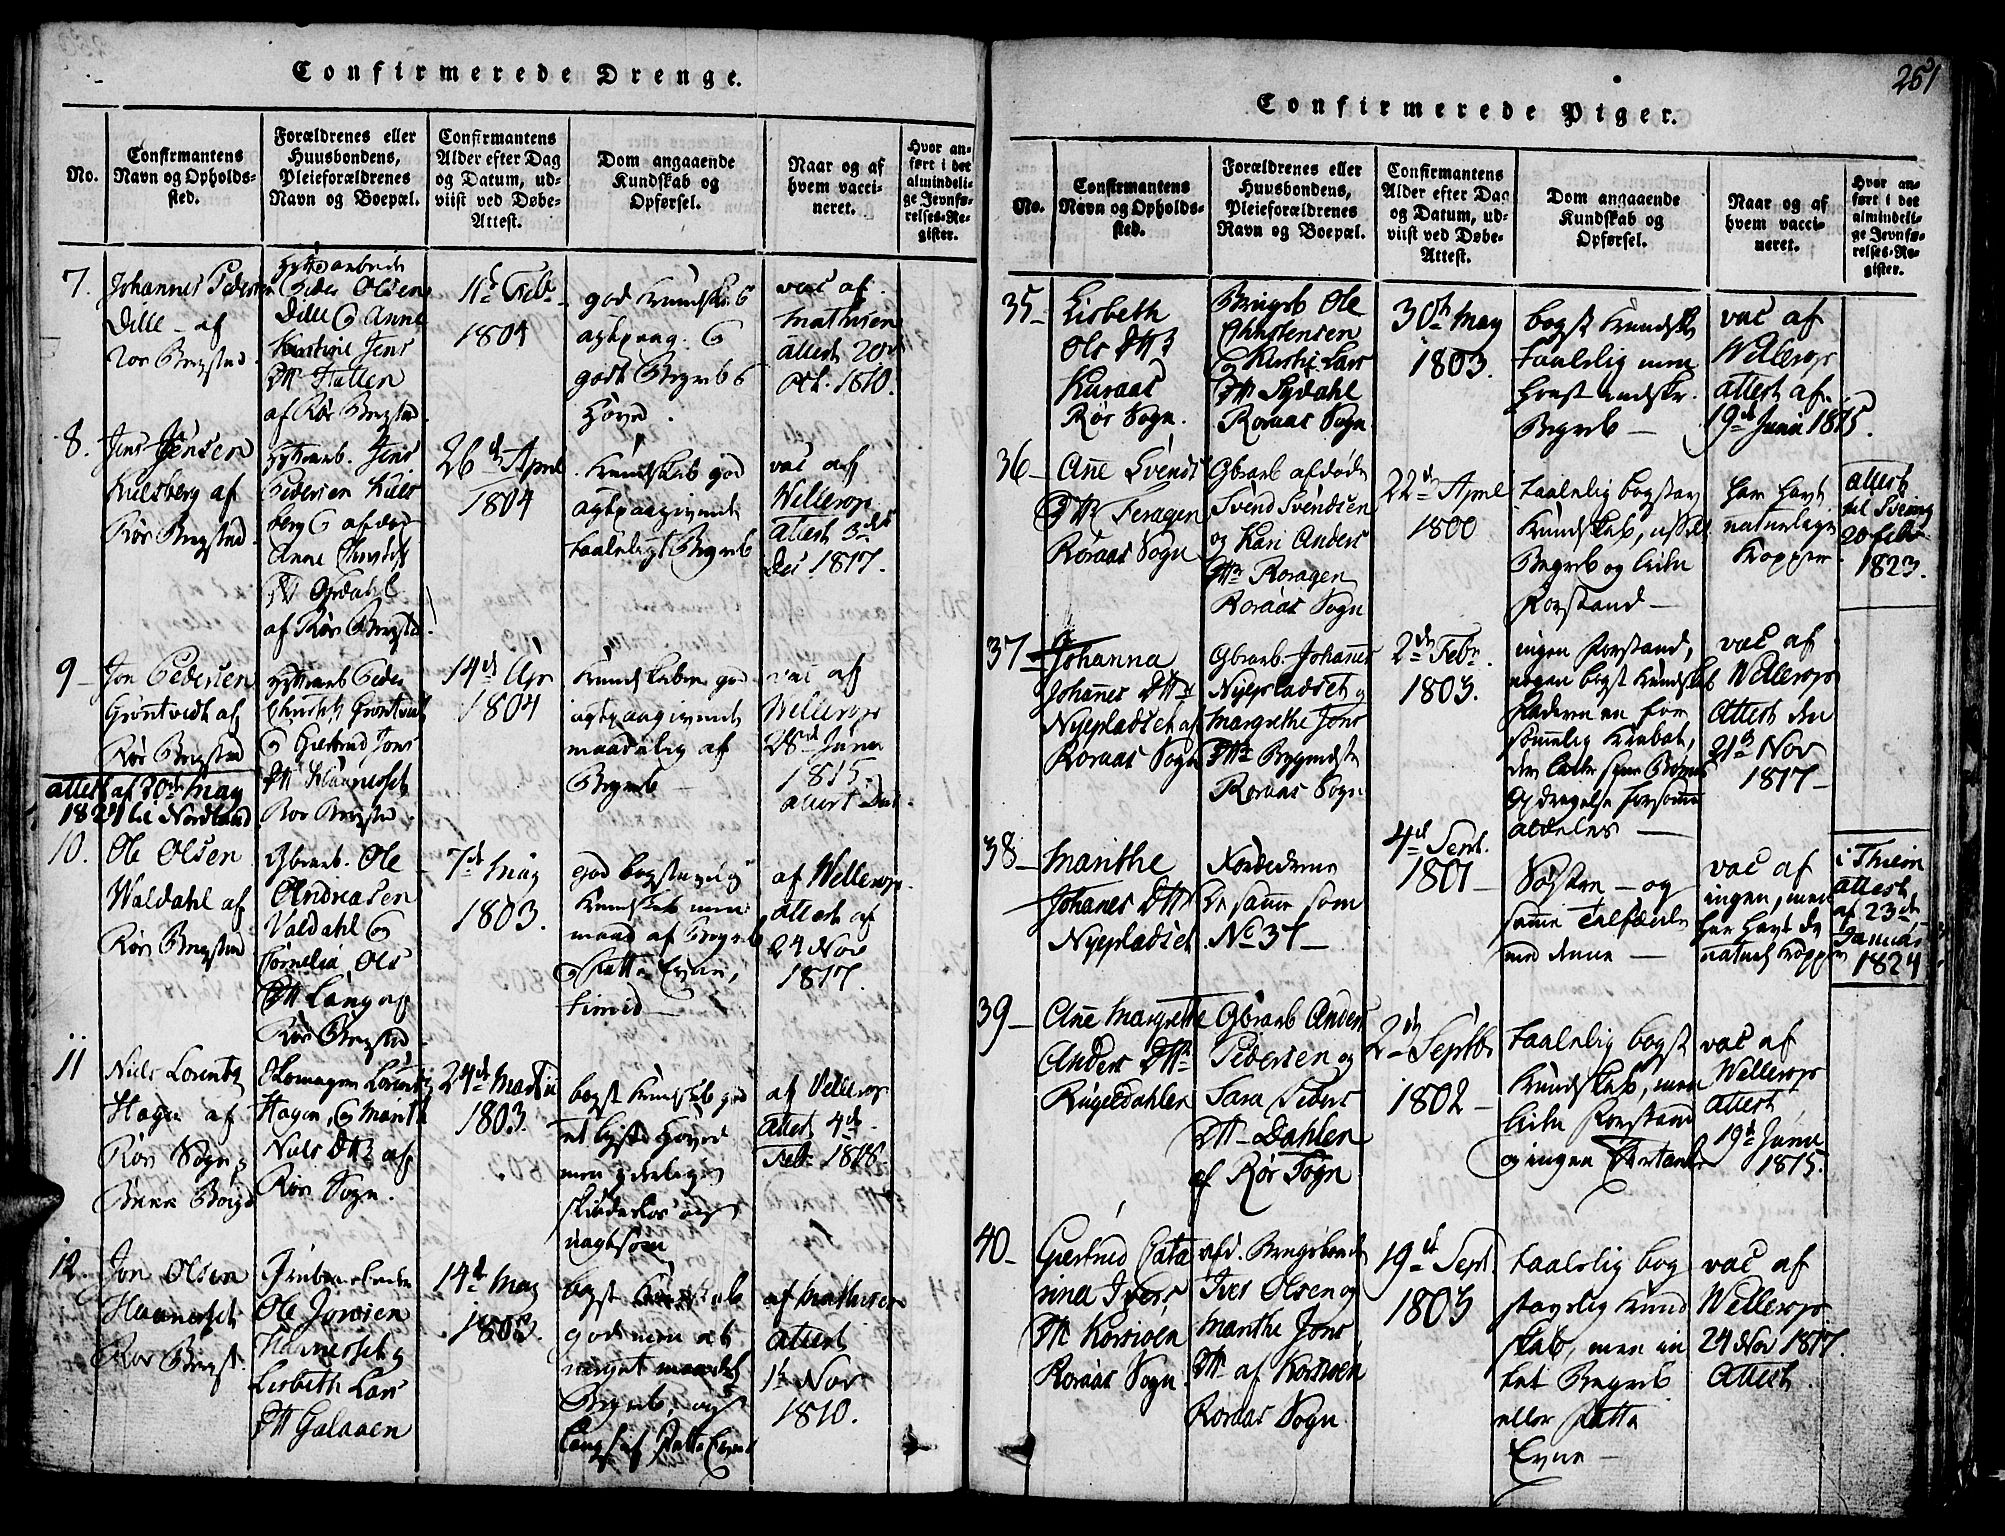 Confirmerede Drenge.
No.
Confirmantens
Navn og Opholds-
sted.
Forældrenes eller
Huusbondens,
Pleieforældrenes
Navn og Boepæl.
Confirmantens
Alder efter Dag
og Datum, ud-
viist ved Døbe-
Attest.
Dom angaaende
Kundskab og
Opførsel.
Naar og af
hvem vacci-
neret.
Hvor an-
ført i det
almindeli-
ge Jevnfø-
relses-Re-
gister.
7.
Johannes Peders
Dille - af
Rør Bergstad
Peder Olsen
Dille & Anne
Kirstine Jens
Dtr
af Rør Bergstad
11te Feb
1804
god Kundskab
agtpaag. &
godt Begreb
Hoved.
vac af
Mathisen
attest 20de
Oct. 1810.
8.
Jens Jensen
Kulsberg af
Rør Bergstad
Hyttearb. Jens
Pedersen Kuls
berg &
Anne
Dtr
af Rør Bergstad
26de April
1804
Kundskab god
agtpaagivende
taaleligt Begreb
vac af
Wellerop
attest 3die
Dec 1817.
9
Jon Pedersen
Grøntvedt af
Rør Bergstad
attest af 20de May
1824 til Nordland
Hyttearb Peder
Grøntvedt
& Giertrud Jons
Dtr
Rør Bergstad
14de Apr
1804
Kundskaben god
agtpaagivende
maadelig af
Begreb
vac af
Wellerop
28de Junii
1815
attest
10.
Ole Olsen
Waldahl af
Rør Bergstad
Gbrarb. Ole
Andreasen
Valdahl &
Cornelia Ols
Dtr Lang af
Rør Bergstad
7de May
1803.
god bogstavelig
Kundskab men
maad af Begreb
& Fatte Evne,
timid
af Wellerop
attest af
24 Nov
1817.
11
Niels Lorentz
Hagen af
Rør Sogn
Lorentz
Hagen, & Marit
Niels Dtr af
Rør Sogn.
24de Martii
1803.
bogst Kundskab god
et lyst Hoved
men yderlig
skiødesløs og
uagtsom
af Wellerop
attest 4de
Feb. 1818
12.
Jon Olsen
Haanesset
Rør Bergst.
Ole Jonsen
Haanesset
Lisbeth Lars
Dtr Galaaen
14de May
1803.
bogst Kundskab
god men at
ringe maadel
Begreb, og
langs af Fatte Evne
af Mathisen
attest
1te Nov
1810.
251
Confirmerede Piger.
No.
Confirmantens
Navn og Opholds-
sted.
Forældrenes eller
Huusbondens,
Pleieforældrenes
Navn og Boepæl.
Confirmantens
Alder efter Dag
og Datum, ud-
viist ved Døbe-
Attest.
Dom angaaende
Kundskab og
Opførsel.
Naar og af
hvem vacci-
neret.
Hvor an-
ført i det
almindeli-
ge Jevnfø-
relses-Re-
gister.
35
Lisbeth
Ols Dtr
Kuraas
Rør Sogn.
Ole
Christensen
& Kirsti Lars
Dtr Sydahl
Roraas Sogn
30te May
1803.
bogst Kundsk
taalelig men
Begreb
vac af
Wellerop
attest af
19de Junii 1815.
36
Ane Svends
Dtr Feragen
Roraas Sogn
Gbrarb afdøde
Svend Svendsen
og Kari Anders
Dtr Roragen
Roraas Sogn
22de April
1800
taalelig bogstav
Kundskab, ussel
Begreb og liden
Forstand
har havt
naturlige
Kopper
attest
til
20 Feb
1823.
37
Johanna
Johanes Dtr
Nyepladset af
Roraas Sogn
Gbrarb. Johannes
Nyepladset &
Margrethe Jons
Dtr
Roraas Sogn
2den Febr
1803.
ingen Forstand,
nogen bogst Kundskab
Faderen en for
sømmelig Krabat,
der lader sine Børns
Opdragelse forsømme
aldeles
vac af
Wellerop
Attest den
21de Nov
1817
38
Marithe
Johanes Dtr
Nyepladset
Forældrene
De samme som
No 37
4de Sept.
1801
Søsteren - og
samme Tilfælde
med denne
vac af
ingen, men
har havt de
naturl Kopper
i Thiem
attest
af 23de
Januar
1824
39
Ane Margrethe
Anders Dtr
Rugeldahlen
Gbrarb Anders
Pedersen og
Sara Peders
Dtr Dahlen
af Rør Sogn
2den Septbr
1802
taalelig bogst
Kundskab, men
liden Forstand
og ingen
vac af
Wellerop
Attest
19de Junii
1815.
40
Giertrud Cata
rina Ivers
Dtr Korssøen
Roraas Sogn
afd.
Iver Olsen og
Marithe Jons
Dtr af Korssøen
Roraas Sogn
19de Sept.
1803
taalelig bog
stavelig Kund
skab, men in
tet Begreb
eller Fatte
Evne
vac af
Wellerop
24 Nov 1817.
Attest